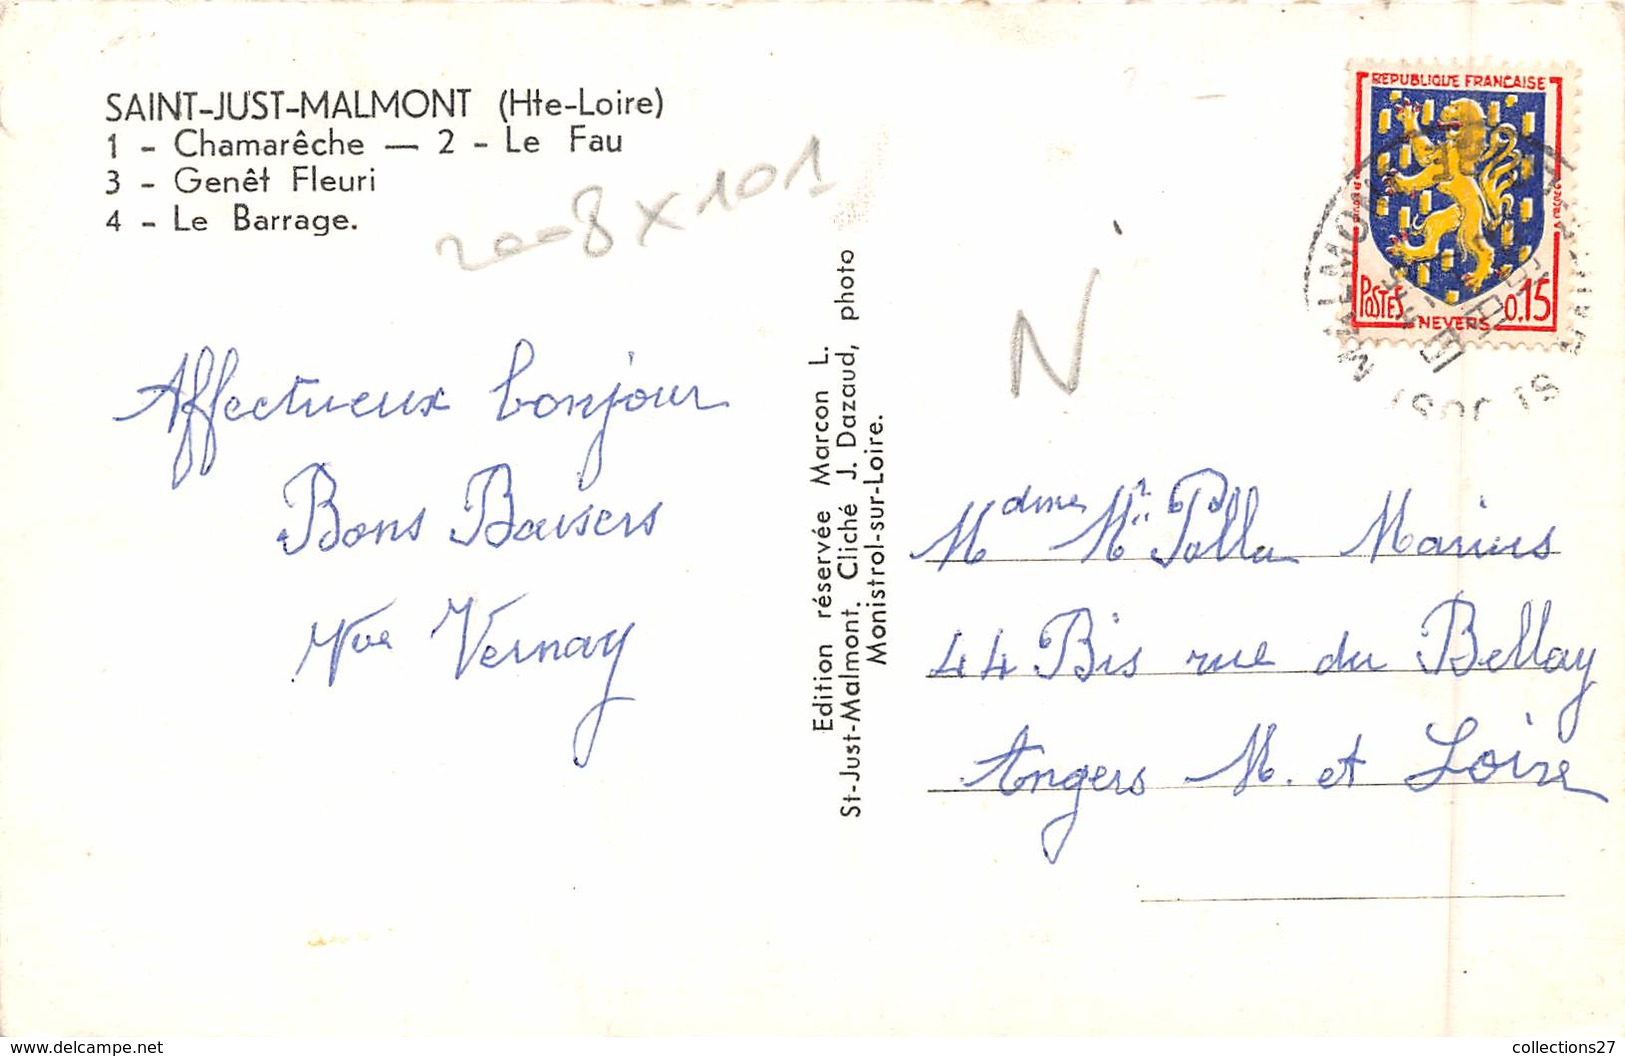 SAINT-JUST-MALMONT (Hte-Loire)
1 - Chamarêche — 2 - Le Fau
3 - Genêt Fleuri
4 - Le Barrage.
2008 X 101
Affectueux bonjour
Bons Baisers
Vve Vernay
Edition réservée Marcon L.
St-Just-Malmont. Cliché J. Dazaud, photo
Monistrol-sur-Loire.
N
REPUBLIQUE FRANCAISE
POSTES 0.15
NEVERS
ST JUST MALMONT
Mdme Mr Polla Marius
44 Bis rue du Bellay
Angers M. et Loire
www.delcampe.net
collections27